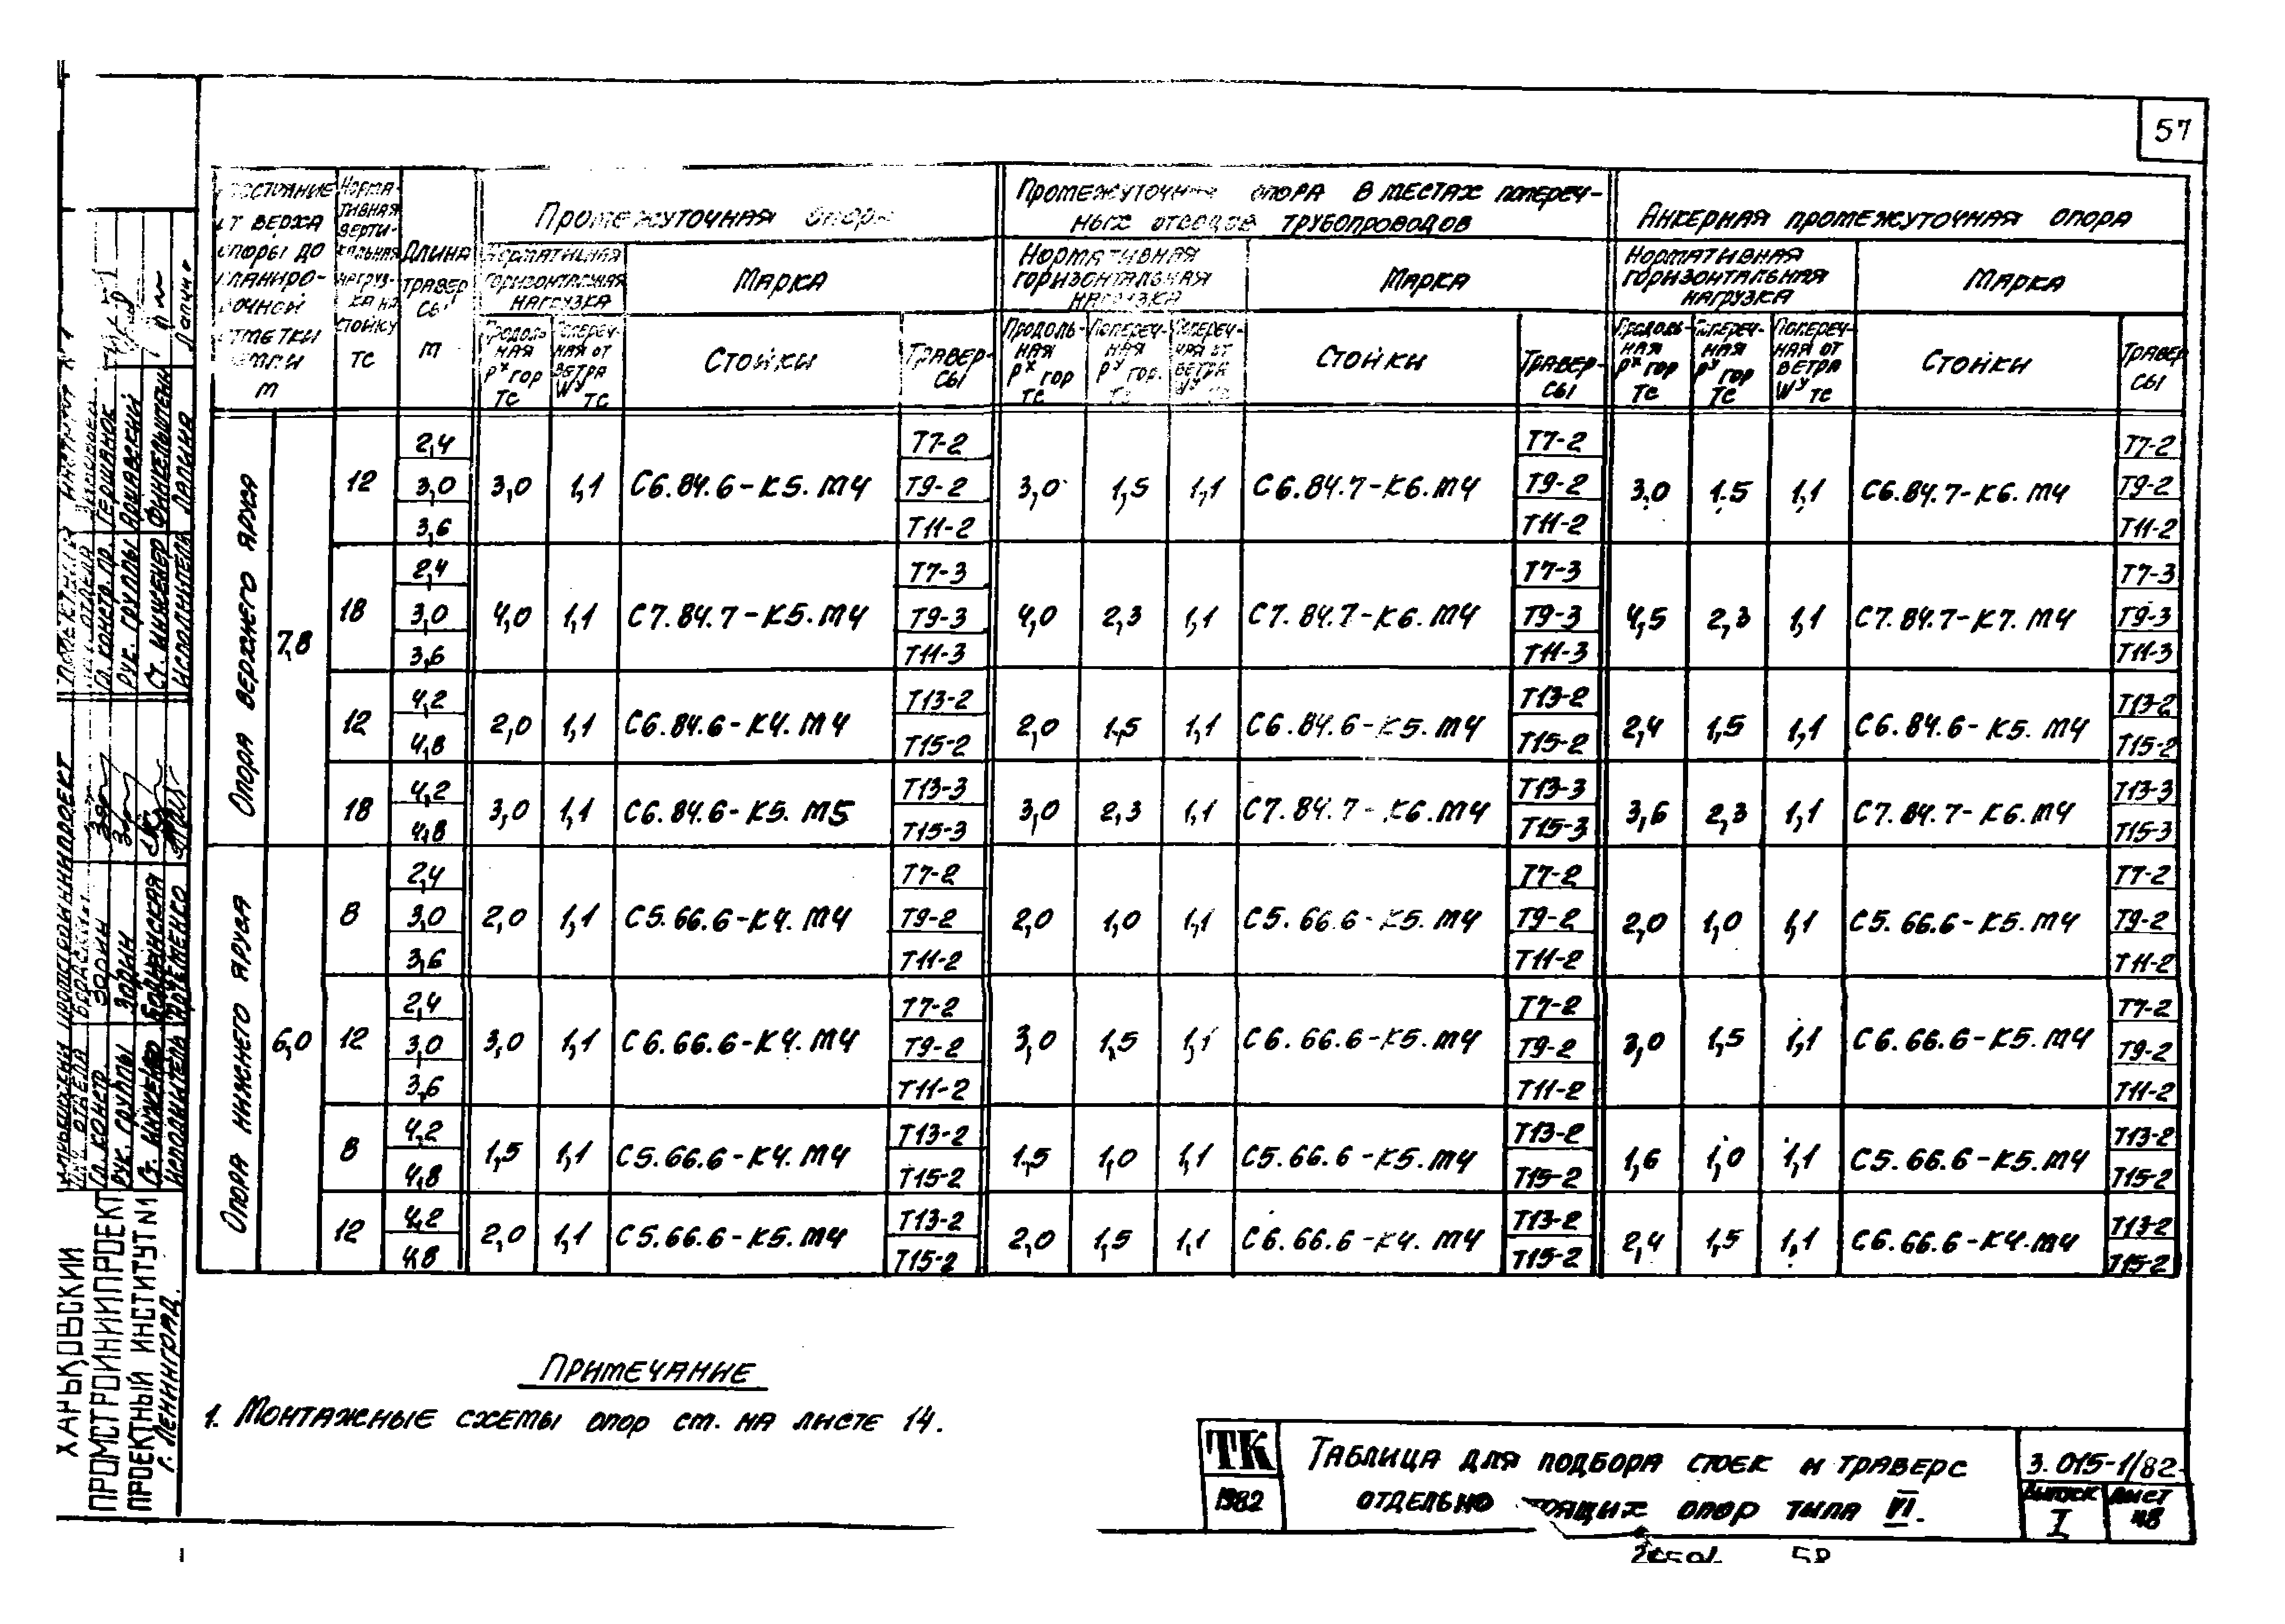 57
Опора верхнего яруса
7,8
Промежуточная
Промежуточная опора в местах попереч-
ных отводов трубопроводов
Анкерная промежуточная опора
Длина
травер
сы
м
тс
Марка
Стойки
Травер-
сы
Нормативная
горизонтальная
нагрузка
Марка
Продоль-
ная
Pˣ гор
тс
Стойки
Травер-
сы
Нормативная
горизонтальная
нагрузка
Марка
Попереч-
ная от
ветра
Wʸ тс
Стойки
сы
12 2,4 3,0 3,6 3,0 1,1 С6.84.6-К5.М4 Т7-2 Т9-2 Т11-2 3,0 1,5 1,1 С6.84.7-К6.М4 Т7-2 Т9-2 Т11-2 3,0 1,5 1,1 С6.84.7-К6.М4 Т7-2 Т9-2 Т11-2
18 2,4 3,0 3,6 4,0 1,1 С7.84.7-К5.М4 Т7-3 Т9-3 Т11-3 4,0 2,3 1,1 С7.84.7-К6.М4 Т7-3 Т9-3 Т11-3 4,5 2,3 1,1 С7.84.7-К7.М4 Т7-3 Т9-3 Т11-3
12 4,2 4,8 2,0 1,1 С6.84.6-К4.М4 Т13-2 Т15-2 2,0 1,5 1,1 С6.84.6-К5.М4 Т13-2 Т15-2 2,4 1,5 1,1 С6.84.6-К5.М4 Т13-2 Т15-2
18 4,2 4,8 3,0 1,1 С6.84.6-К5.М5 Т13-3 Т15-3 3,0 2,3 1,1 С7.84.7-К6.М4 Т13-3 Т15-3 3,6 2,3 1,1 С7.84.7-К6.М4 Т13-3 Т15-3
Опора нижнего яруса
6,0
8 2,4 3,0 3,6 2,0 1,1 С5.66.6-К4.М4 Т7-2 Т9-2 Т11-2 2,0 1,0 1,1 С5.66.6-К5.М4 Т7-2 Т9-2 Т11-2 2,0 1,0 1,1 С5.66.6-К5.М4 Т7-2 Т9-2 Т11-2
12 2,4 3,0 3,6 3,0 1,1 С6.66.6-К4.М4 Т7-2 Т9-2 Т11-2 3,0 1,5 1,1 С6.66.6-К5.М4 Т7-2 Т9-2 Т11-2 3,0 1,5 1,1 С6.66.6-К5.М4 Т7-2 Т9-2 Т11-2
8 4,2 4,8 1,5 1,1 С5.66.6-К4.М4 Т13-2 Т15-2 1,5 1,0 1,1 С5.66.6-К5.М4 Т13-2 Т15-2 1,6 1,0 1,1 С5.66.6-К5.М4 Т13-2 Т15-2
12 4,2 4,8 2,0 1,1 С5.66.6-К5.М4 Т13-2 Т15-2 2,0 1,5 1,1 С6.66.6-К4.М4 Т13-2 Т15-2 2,4 1,5 1,1 С6.66.6-К4.М4 Т13-2 Т15-2
Примечание
1. Монтажные схемы опор см. на листе 14.
ТК
1982
Таблица для подбора стоек и траверс
отдельно опор типа VI.
3.015-1/82
Выпуск
I
Лист
48
ПРОМСТРОЙНИИПРОЕКТ
ПРОЕКТНЫЙ ИНСТИТУТ №1
г. Ленинград.
Гл. констр. Зорин
Рук. группы Зорин
Ст. инженер
Исполнитель Артеменко
Рук. группы Аршавский
Ст. инженер Финкельштейн
Исполнитель Лапина